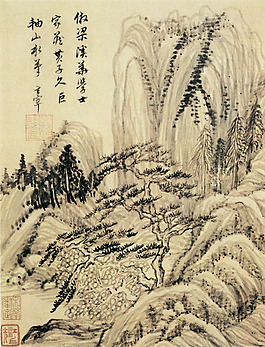 倣梁溪華學士
家藏黃子久巨
軸山水筆 玄宰